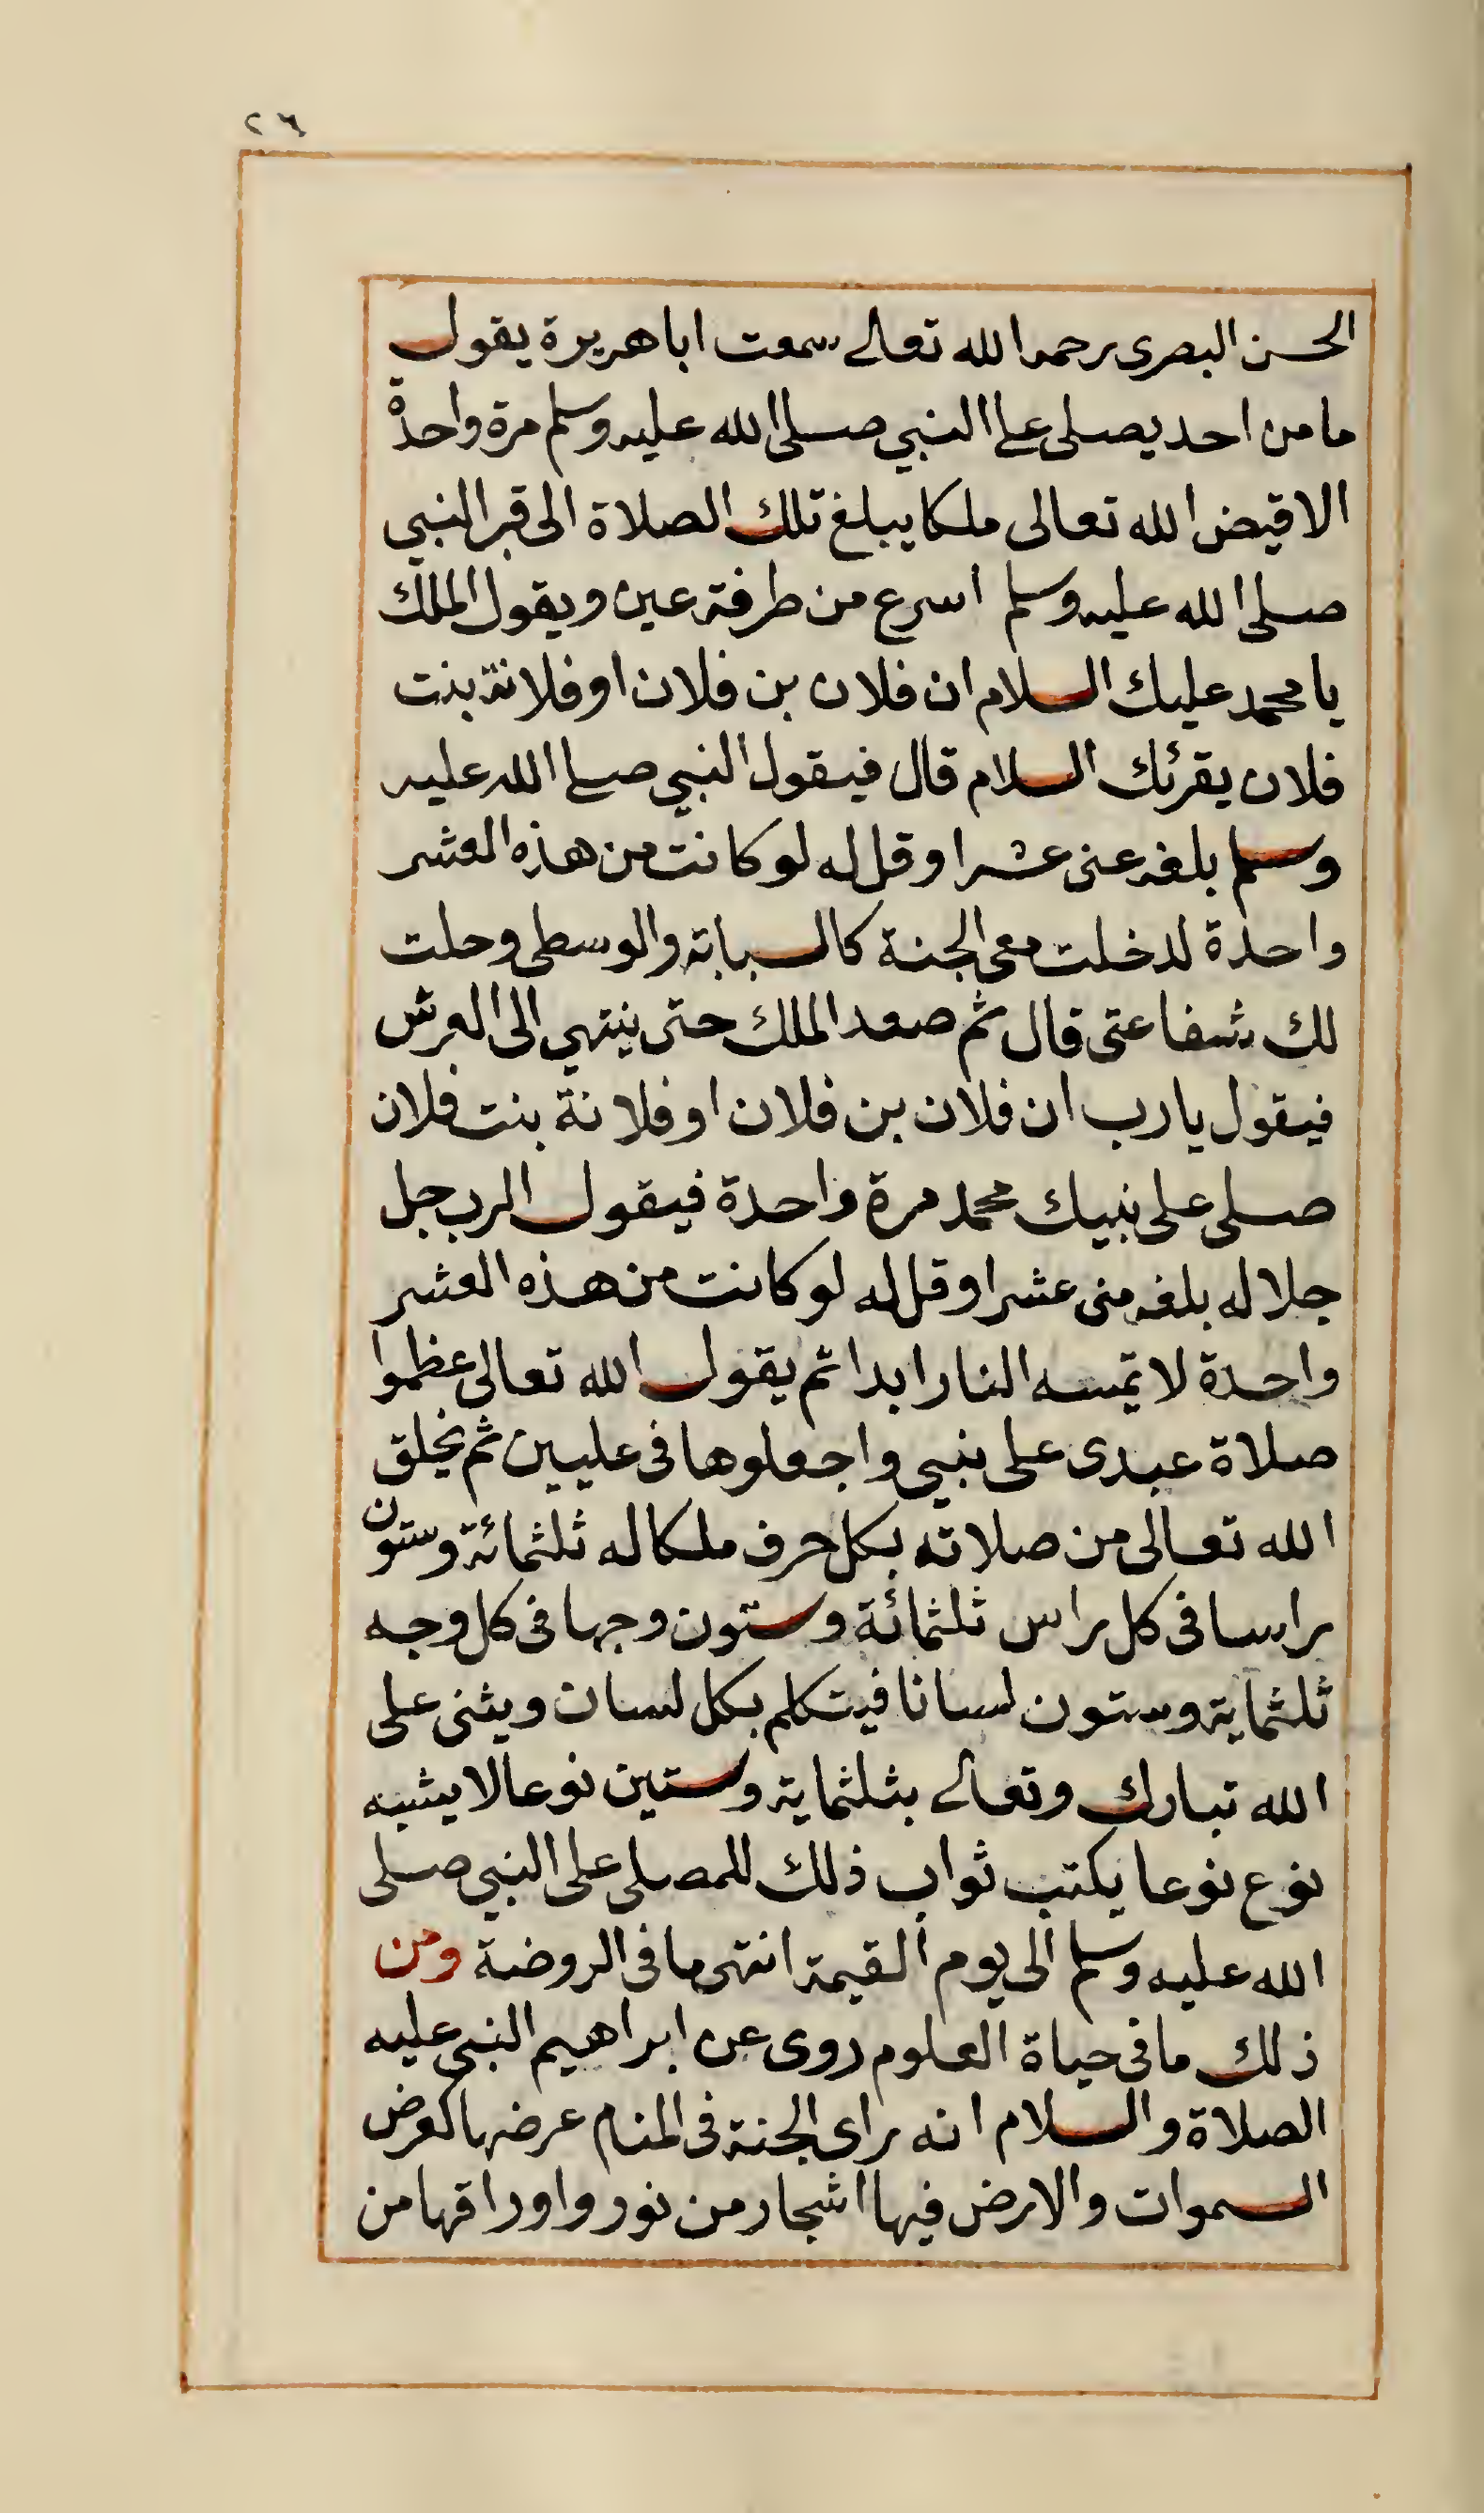 ٢٦
الحسن البصرى رحمه الله تعالى سمعت ابا هريرة يقول
ما من احد يصلى على النبي صلى الله عليه وسلم مرة واحدة
الا قيض الله تعالى ملكا يبلغ تلك الصلاة الى قبر النبي
صلى الله عليه وسلم اسرع من طرفة عين ويقول الملك
يا محمد عليك السلام ان فلان بن فلان او فلانة بنت
فلان يقرئك السلام قال فيقول النبي صلى الله عليه
وسلم بلغه عنى عشرا وقل له لو كانت من هذه العشر
واحدة لدخلت معى الجنة كالسبابة والوسطى وحلت
لك شفاعتى قال ثم صعد الملك حتى ينتهي الى العرش
فيقول يا رب ان فلان بن فلان او فلانة بنت فلان
صلى على نبيك محمد مرة واحدة فيقول الرب جل
جلاله بلغه منى عشرا وقل له لو كانت من هذه العشر
واحدة لا تمسه النار ابدا ثم يقول الله تعالى عظموا
صلاة عبدى على نبيي واجعلوها فى عليين ثم يخلق
الله تعالى من صلاته بكل حرف ملكا له ثلثمائة وستون
راسا فى كل راس ثلثمائة وستون وجها فى كل وجه
ثلثماية وستون لسانا فيتكلم بكل لسان ويثنى على
الله تبارك وتعالى بثلثماية وستين نوعا لا يشبه
نوع نوعا يكتب ثواب ذلك للمصلى على النبي صلى
الله عليه وسلم الى يوم القيمة انتهى ما فى الروضة ومن
ذلك ما فى حياة العلوم روى عن ابراهيم النبي عليه
الصلاة والسلام انه راى الجنة فى المنام عرضها كعرض
السموات والارض فيها اشجار من نور واوراقها من